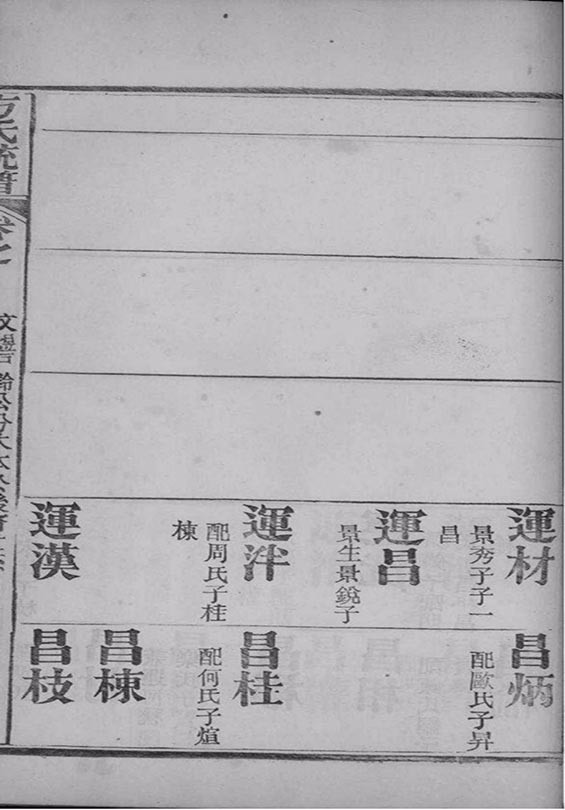 運材
景秀子子一
昌
運昌
景生景銳子
運泮
配周氏子桂
棟
運漢
昌炳
配歐氏子昇
昌桂
配何氏子煊
昌棟
昌枝
方氏統譜